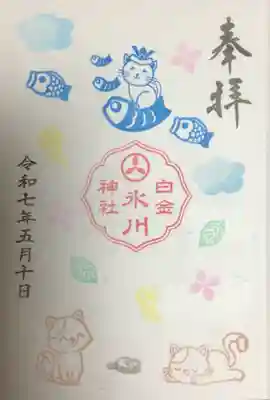 奉拝
白金
氷川
神社
令和七年五月十日